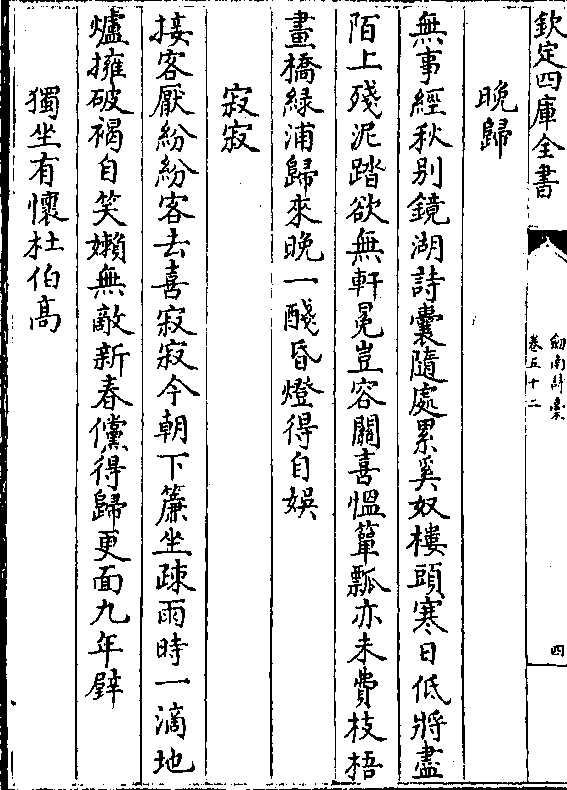 欽定四庫全書
劒南詩稾
卷五十二
四
晚歸
無事經秋别鏡湖詩囊隨處累奚奴樓頭寒日低將盡
陌上殘泥踏欲無軒冕豈容關喜愠簞瓢亦未費枝梧
畫橋緑浦歸來晚一醆昏燈得自娛
寂寂
接客厭紛紛客去喜寂寂今朝下簾坐疎雨時一滴地
爐擁破褐自笑嬾無敵新春儻得歸更面九年壁
獨坐有懷杜伯髙